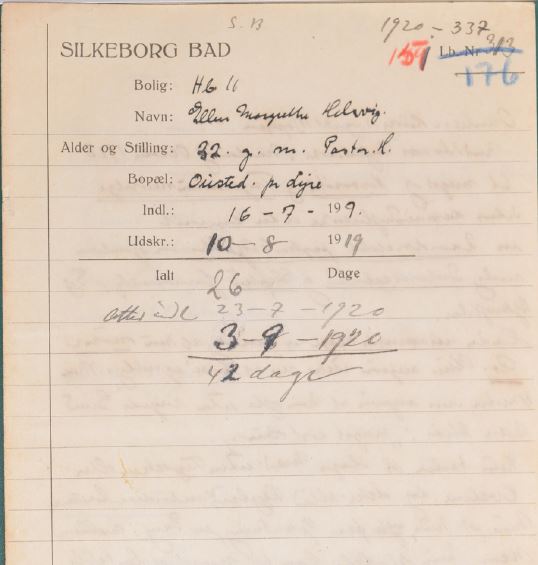 S. B
1920 - 337
SILKEBORG BAD
151 Lb. Nr 313
176
Bolig: H6 11
Navn: Ellen Margrethe Helsvig.
Alder og Stilling: 32. g. m. Pastor H.
Bopæl: Ousted. pr Lejre
Indl.: 16 - 7 - 199.
Udskr.: 10 - 8 1919
Ialt 26 Dage
atter indl 23 - 7 - 1920
3 - 9 - 1920
42 dage